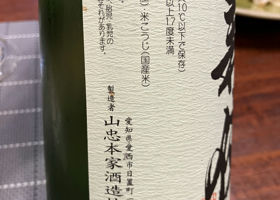 10℃以下で保存)
以上17度未満
)米こうじ(国産米)
胎児・乳児の
それがあります。
製造者
愛知県愛西市日置町
山忠本家酒造